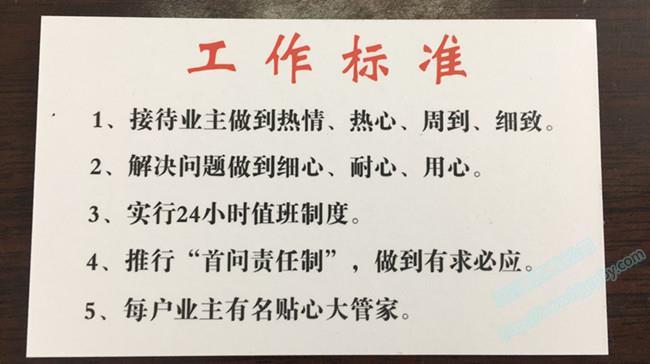 工作标准
1、接待业主做到热情、热心、周到、细致。
2、解决问题做到细心、耐心、用心。
3、实行24小时值班制度。
4、推行“首问责任制”，做到有求必应。
5、每户业主有名贴心大管家。